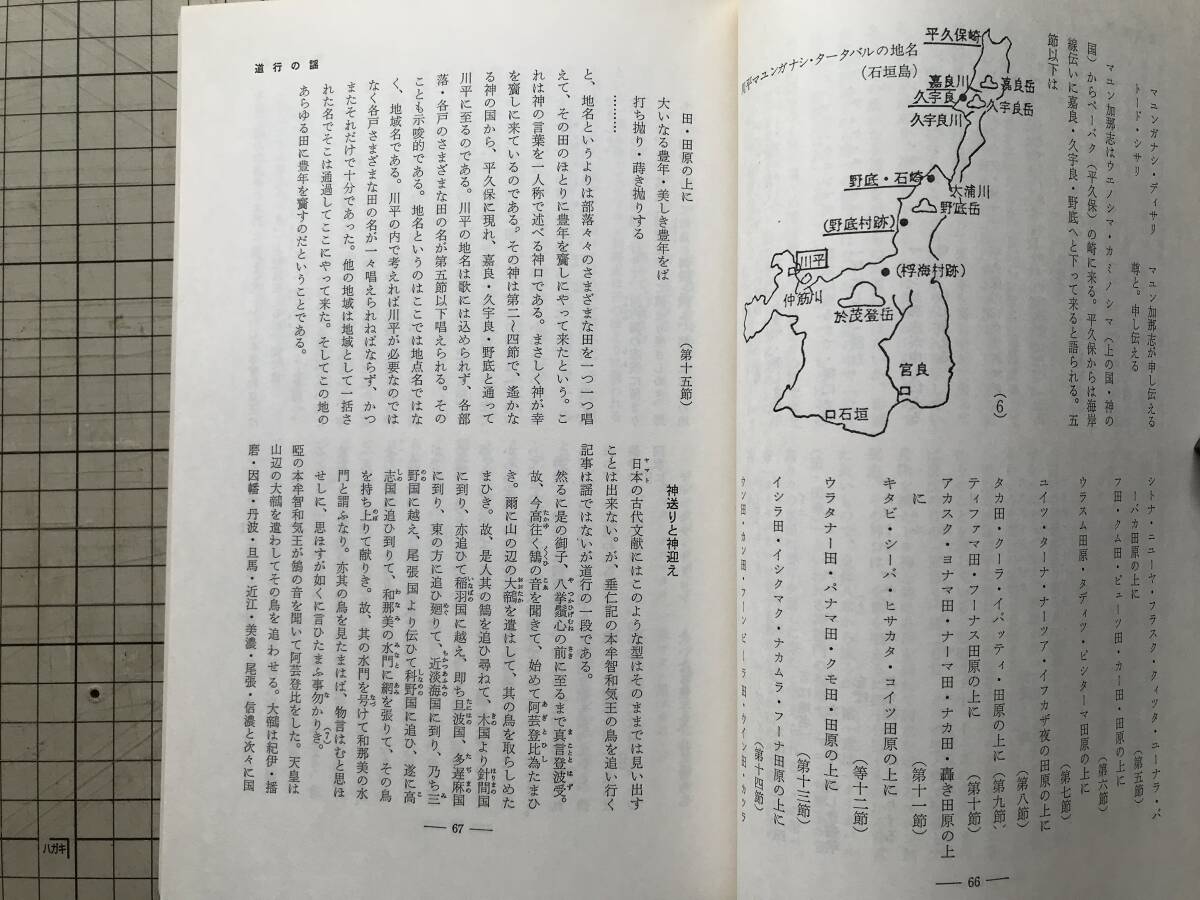 マユンガナシ・ディサリ　マユン加那志が申し伝える
トード・シサリ　尊と。申し伝える
マユン加那志はウエノシマ・カミノシマ（上の国・神の
国）からペーバク（平久保）の崎に来る。平久保からは海岸
線伝いに嘉良・久宇良・野底へと下って来ると語られる。五
節以下は
川平マユンガナシ・タータバルの地名
（石垣島）
平久保崎
嘉良川
嘉良岳
久宇良
久宇良岳
久宇良川
野底・石崎
大浦川
野底岳
（野底村跡）
（桴海村跡）
川平
仲筋川
於茂登岳
宮良
石垣
（6）
シトナ・ニユーヤ・フラスク・クィツタ・ユーナラ・バ
ーバカ田原の上に　（第五節）
フ田・クム田・ピューツ田・カー田・田原の上に
（第六節）
ウラスム田原・タディツ・ピシターマ田原の上に
（第七節）
ユイツ・ターナ・ナーツア・イフカザ夜の田原の上に
（第八節）
タカ田・クーラ・イバッティ・田原の上に　（第九節）
ティファマ田・フーナス田原の上に　（第十節）
アカスク・ヨナマ田・ナーマ田・ナカ田・轟き田原の上
に　（第十一節）
キタビ・シーバ・ヒサカタ・コイツ田原の上に
（等十二節）
ウラタナー田・パナマ田・クモ田・田原の上に
（第十三節）
イシラ田・イシクマク・ナカムラ・フーナ田原の上に
（第十四節）
ウン田・カン田・フーン ピーラ田・ウイシ田・カツラ
— 66 —
道行の謡
田・田原の上に
大いなる豊年・美しき豊年をば
打ち抛り・蒔き抛りする
…………　（第十五節）
と、地名というよりは部落々々のさまざまな田を一つ一つ唱
えて、その田のほとりに豊年を齎しにやって来たという。こ
れは神の言葉を一人称で述べる神口である。まさしく神が幸
を齎しに来ているのである。その神は第二～四節で、遙かな
る神の国から、平久保に現れ、嘉良・久宇良・野底と通って
川平に至るのである。川平の地名は歌には込められず、各部
落・各戸のさまざまな田の名が第五節以下唱えられる。その
ことも示唆的である。地名というのはここでは地点名ではな
く、地域名である。川平の内で考えれば川平が必要なのでは
なく各戸さまざまな田の名が一々唱えられねばならず、かつ
またそれだけで十分であった。他の地域は地域として一括さ
れた名でそこは通過してここにやって来た。そしてこの地の
あらゆる田に豊年を齎すのだということである。
神送りと神迎え
日本の古代文献にはこのような型はそのままでは見い出す
ことは出来ない。が、垂仁記の本牟智和気王の鳥を追い行く
記事は謡ではないが道行の一段である。
然るに是の御子、八拳鬚心の前に至るまで真言登波受。
故、今高往く鵠の音を聞きて、始めて阿芸登比為たまひ
き。爾に山の辺の大鶙を遣はして、其の鳥を取らしめた
まひき。故、是人其の鵠を追ひ尋ねて、木国より針間国
に到り、亦追ひて稲羽国に越え、即ち旦波国、多遅麻国
に到り、東の方に追ひ廻りて、近淡海国に到り、乃ち三
野国に越え、尾張国より伝ひて科野国に追ひ、遂に高
志国に追ひ到りて、和那美の水門に網を張りて、その鳥
を持ち上りて献りき。故、其の水門を号けて和那美の水
門と謂ふなり。亦其の鳥を見たまはば、物言はむと思ほ
せしに、思ほすが如くに言ひたまふ事勿かりき。（7）
啞の本牟智和気王が鵠の音を聞いて阿芸登比をした。天皇は
山辺の大鶙を遣わしてその鳥を追わせる。大鶙は紀伊・播
磨・因幡・丹波・旦馬・近江・美濃・尾張・信濃と次々に国
— 67 —
ハガキ